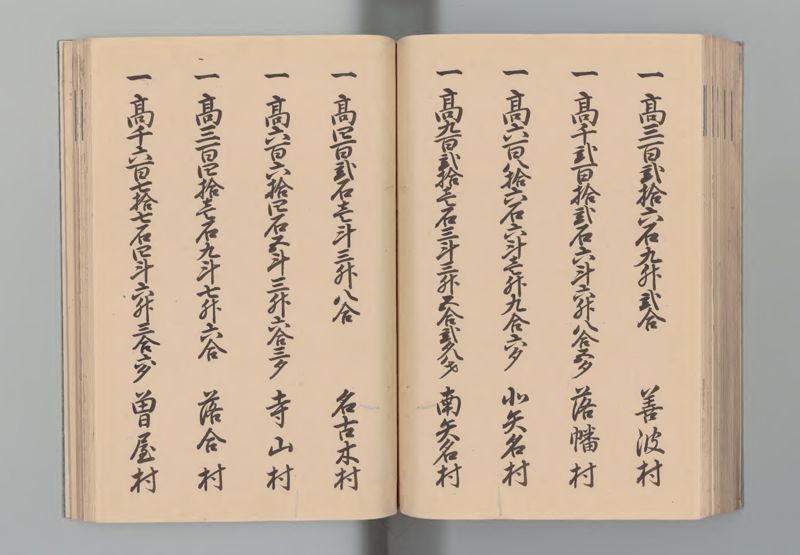 一 高三百弐拾六石九升弐合 善波村
一 高千弐百拾弐石六斗六升八合五夕 落幡村
一 高六百八拾六石六斗壱升九合六夕 北矢名村
一 高九百弐拾壱石三斗三升五合弐夕八才 南矢名村
一 高四百弐石壱斗三升八合 名古木村
一 高六百六拾四石五斗三升六合三夕 寺山村
一 高三百四拾壱石九斗七升六合 落合村
一 高千六百七拾七石四斗六升三合六夕 曽屋村